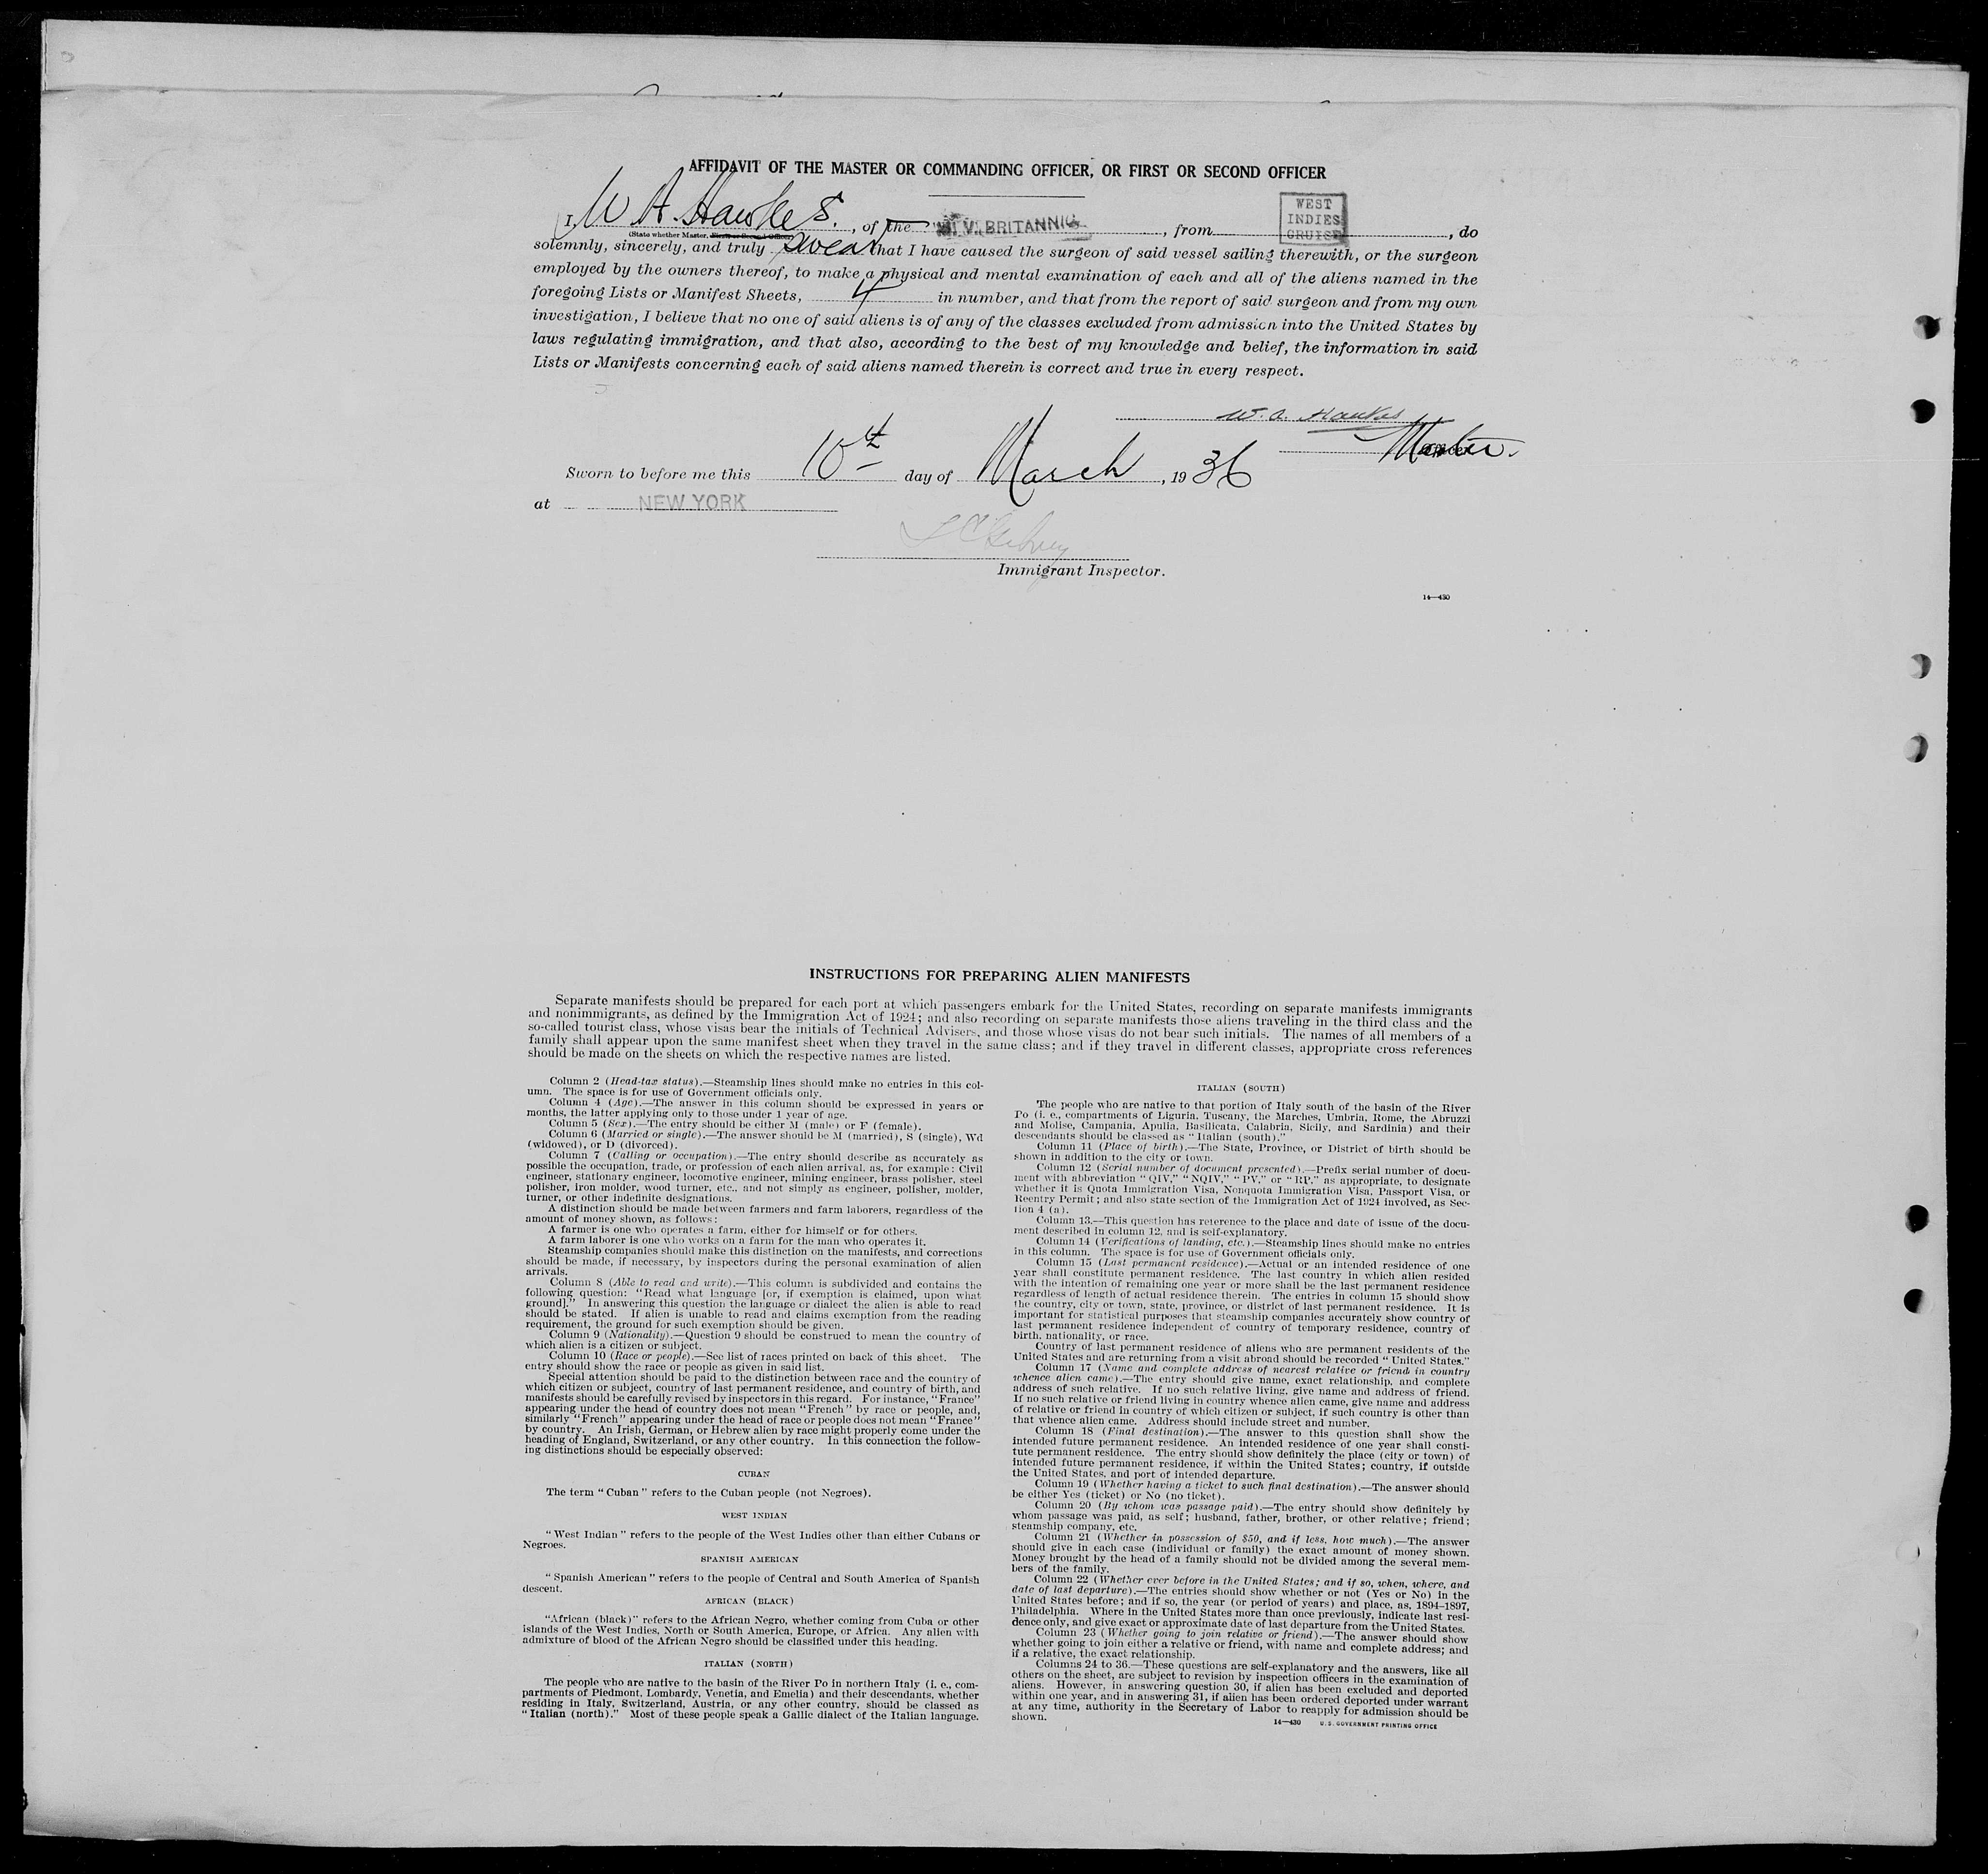 AFFIDAVIT OF THE MASTER OR COMMANDING OFFICER, OR FIRST OR SECOND OFFICER
I, W A. Hawkes., of the M.V. BRITANNIC, from WEST INDIES CRUISE, do
(State whether Master, First or Second Officer)
solemnly, sincerely, and truly swear that I have caused the surgeon of said vessel sailing therewith, or the surgeon
employed by the owners thereof, to make a physical and mental examination of each and all of the aliens named in the
foregoing Lists or Manifest Sheets, 4 in number, and that from the report of said surgeon and from my own
investigation, I believe that no one of said aliens is of any of the classes excluded from admission into the United States by
laws regulating immigration, and that also, according to the best of my knowledge and belief, the information in said
Lists or Manifests concerning each of said aliens named therein is correct and true in every respect.
W. A. Hawkes
Master.
Sworn to before me this 10th day of March, 1936
at NEW YORK
Immigrant Inspector.
14—430
INSTRUCTIONS FOR PREPARING ALIEN MANIFESTS
Separate manifests should be prepared for each port at which passengers embark for the United States, recording on separate manifests immigrants
and nonimmigrants, as defined by the Immigration Act of 1924; and also recording on separate manifests those aliens traveling in the third class and the
so-called tourist class, whose visas bear the initials of Technical Advisers, and those whose visas do not bear such initials. The names of all members of a
family shall appear upon the same manifest sheet when they travel in the same class; and if they travel in different classes, appropriate cross references
should be made on the sheets on which the respective names are listed.
Column 2 (Head-tax status).—Steamship lines should make no entries in this col-
umn. The space is for use of Government officials only.
Column 4 (Age).—The answer in this column should be expressed in years or
months, the latter applying only to those under 1 year of age.
Column 5 (Sex).—The entry should be either M (male) or F (female).
Column 6 (Married or single).—The answer should be M (married), S (single), Wd
(widowed), or D (divorced).
Column 7 (Calling or occupation).—The entry should describe as accurately as
possible the occupation, trade, or profession of each alien arrival, as, for example: Civil
engineer, stationary engineer, locomotive engineer, mining engineer, brass polisher, steel
polisher, iron molder, wood turner, etc., and not simply as engineer, polisher, molder,
turner, or other indefinite designations.
A distinction should be made between farmers and farm laborers, regardless of the
amount of money shown, as follows:
A farmer is one who operates a farm, either for himself or for others.
A farm laborer is one who works on a farm for the man who operates it.
Steamship companies should make this distinction on the manifests, and corrections
should be made, if necessary, by inspectors during the personal examination of alien
arrivals.
Column 8 (Able to read and write).—This column is subdivided and contains the
following question: "Read what language [or, if exemption is claimed, upon what
ground]." In answering this question the language or dialect the alien is able to read
should be stated. If alien is unable to read and claims exemption from the reading
requirement, the ground for such exemption should be given.
Column 9 (Nationality).—Question 9 should be construed to mean the country of
which alien is a citizen or subject.
Column 10 (Race or people).—See list of races printed on back of this sheet. The
entry should show the race or people as given in said list.
Special attention should be paid to the distinction between race and the country of
which citizen or subject, country of last permanent residence, and country of birth, and
manifests should be carefully revised by inspectors in this regard. For instance, "France"
appearing under the head of country does not mean "French" by race or people, and,
similarly "French" appearing under the head of race or people does not mean "France"
by country. An Irish, German, or Hebrew alien by race might properly come under the
heading of England, Switzerland, or any other country. In this connection the follow-
ing distinctions should be especially observed:
CUBAN
The term "Cuban" refers to the Cuban people (not Negroes).
WEST INDIAN
"West Indian" refers to the people of the West Indies other than either Cubans or
Negroes.
SPANISH AMERICAN
"Spanish American" refers to the people of Central and South America of Spanish
descent.
AFRICAN (BLACK)
"African (black)" refers to the African Negro, whether coming from Cuba or other
islands of the West Indies, North or South America, Europe, or Africa. Any alien with
admixture of blood of the African Negro should be classified under this heading.
ITALIAN (NORTH)
The people who are native to the basin of the River Po in northern Italy (i. e., com-
partments of Piedmont, Lombardy, Venetia, and Emelia) and their descendants, whether
residing in Italy, Switzerland, Austria, or any other country, should be classed as
"Italian (north)." Most of these people speak a Gallic dialect of the Italian language.
ITALIAN (SOUTH)
The people who are native to that portion of Italy south of the basin of the River
Po (i. e., compartments of Liguria, Tuscany, the Marches, Umbria, Rome, the Abruzzi
and Molise, Campania, Apulia, Basilicata, Calabria, Sicily, and Sardinia) and their
descendants should be classed as "Italian (south)."
Column 11 (Place of birth).—The State, Province, or District of birth should be
shown in addition to the city or town.
Column 12 (Serial number of document presented).—Prefix serial number of docu-
ment with abbreviation "QIV," "NQIV," "PV," or "RP," as appropriate, to designate
whether it is Quota Immigration Visa, Nonquota Immigration Visa, Passport Visa, or
Reentry Permit; and also state section of the Immigration Act of 1924 involved, as Sec-
tion 4 (a).
Column 13.—This question has reference to the place and date of issue of the docu-
ment described in column 12, and is self-explanatory.
Column 14 (Verifications of landing, etc.).—Steamship lines should make no entries
in this column. The space is for use of Government officials only.
Column 15 (Last permanent residence).—Actual or an intended residence of one
year shall constitute permanent residence. The last country in which alien resided
with the intention of remaining one year or more shall be the last permanent residence
regardless of length of actual residence therein. The entries in column 15 should show
the country, city or town, state, province, or district of last permanent residence. It is
important for statistical purposes that steamship companies accurately show country of
last permanent residence independent of country of temporary residence, country of
birth, nationality, or race.
Country of last permanent residence of aliens who are permanent residents of the
United States and are returning from a visit abroad should be recorded "United States."
Column 17 (Name and complete address of nearest relative or friend in country
whence alien came).—The entry should give name, exact relationship, and complete
address of such relative. If no such relative living, give name and address of friend.
If no such relative or friend living in country whence alien came, give name and address
of relative or friend in country of which citizen or subject, if such country is other than
that whence alien came. Address should include street and number.
Column 18 (Final destination).—The answer to this question shall show the
intended future permanent residence. An intended residence of one year shall consti-
tute permanent residence. The entry should show definitely the place (city or town) of
intended future permanent residence, if within the United States; country, if outside
the United States, and port of intended departure.
Column 19 (Whether having a ticket to such final destination).—The answer should
be either Yes (ticket) or No (no ticket).
Column 20 (By whom was passage paid).—The entry should show definitely by
whom passage was paid, as self; husband, father, brother, or other relative; friend;
steamship company, etc.
Column 21 (Whether in possession of $50, and if less, how much).—The answer
should give in each case (individual or family) the exact amount of money shown.
Money brought by the head of a family should not be divided among the several mem-
bers of the family.
Column 22 (Whether ever before in the United States; and if so, when, where, and
date of last departure).—The entries should show whether or not (Yes or No) in the
United States before; and if so, the year (or period of years) and place, as, 1894-1897,
Philadelphia. Where in the United States more than once previously, indicate last resi-
dence only, and give exact or approximate date of last departure from the United States.
Column 23 (Whether going to join relative or friend).—The answer should show
whether going to join either a relative or friend, with name and complete address; and
if a relative, the exact relationship.
Columns 24 to 36.—These questions are self-explanatory and the answers, like all
others on the sheet, are subject to revision by inspection officers in the examination of
aliens. However, in answering question 30, if alien has been excluded and deported
within one year, and in answering 31, if alien has been ordered deported under warrant
at any time, authority in the Secretary of Labor to reapply for admission should be
shown.
14—430 U. S. GOVERNMENT PRINTING OFFICE